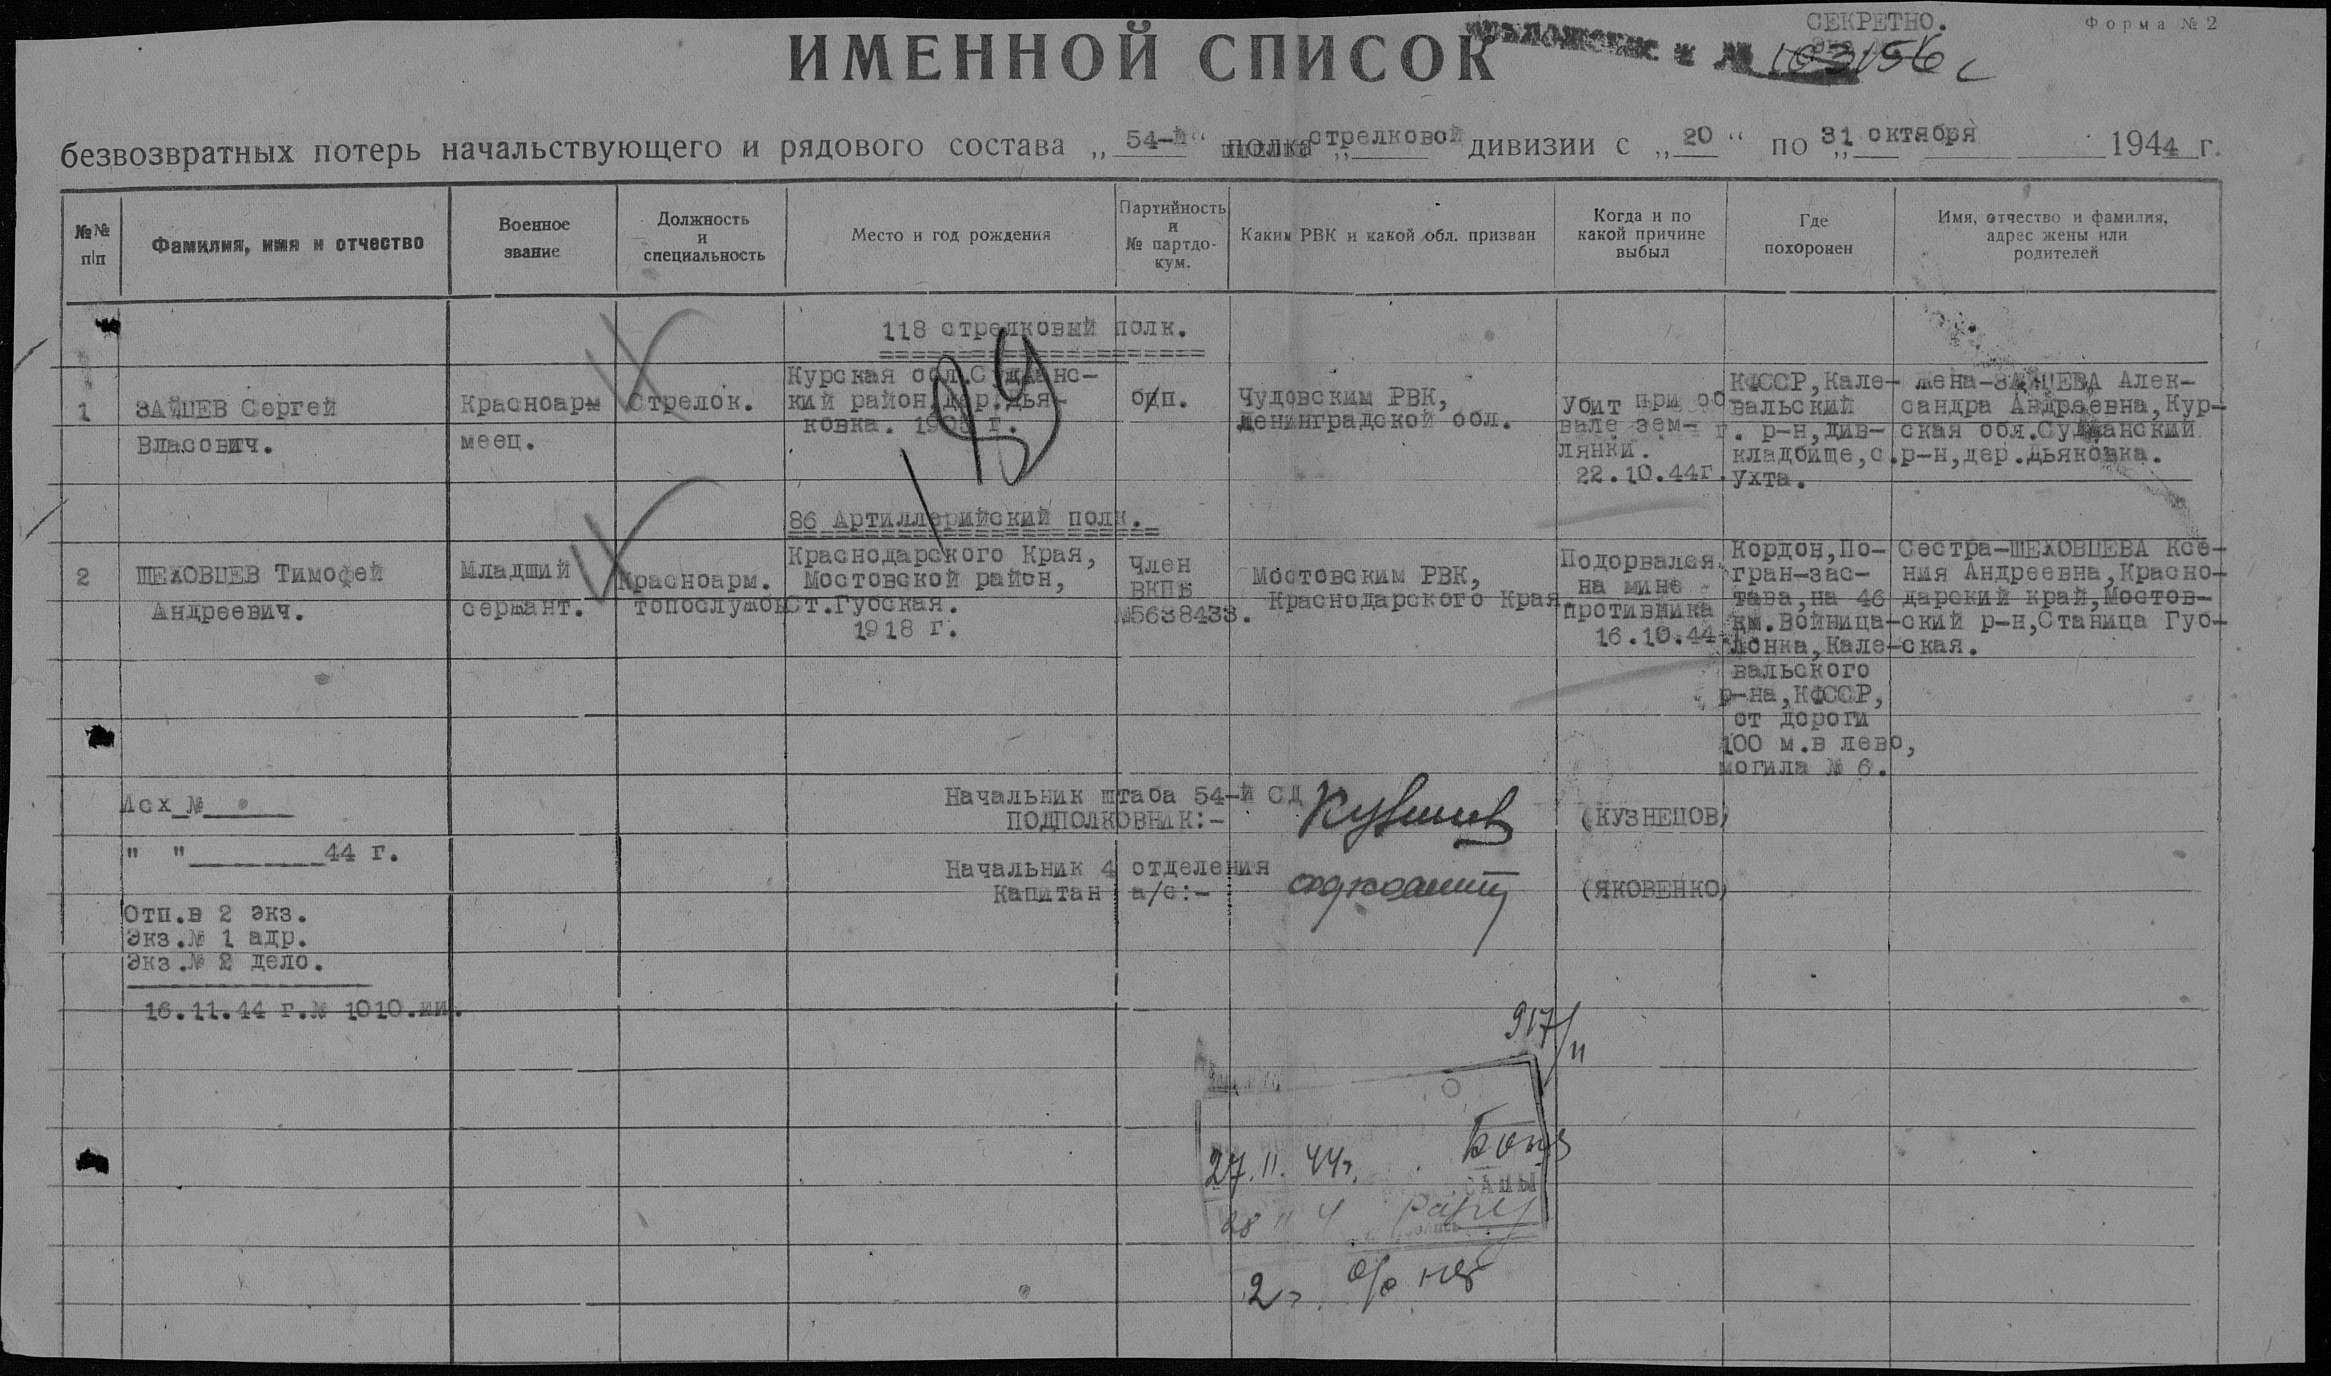 СЕКРЕТНО.
Форма № 2
Приложение к № 103156с
ИМЕННОЙ СПИСОК
безвозвратных потерь начальствующего и рядового состава „ 54-й “ полка стрелковой „ дивизии с „ 20 “ по „ 31 октября 1944 г.
№№ п|п
Фамилия, имя и отчество
Военное звание
Должность и специальность
Место и год рождения
Партийность и № партдокум.
Каким РВК и какой обл. призван
Когда и по какой причине выбыл
Где похоронен
Имя, отчество и фамилия, адрес жены или родителей
118 стрелковый полк.
1
ЗАЙЦЕВ Сергей
Власович.
Красноарм
меец.
Стрелок.
Курская обл.Суджанс-
кий район,дер.Дья-
ковка. г.
б/п.
Чудовским РВК,
Ленинградской обл.
Убит при об
вале зем-
лянки.
22.10.44г.
КФССР,Кале-
вальский
р-н,див-
кладбище,с.
Ухта.
жена-ЗАЙЦЕВА Алек-
сандра Андреевна,Кур-
ская обл.Суджанский
р-н,дер.Дьяковка.
86 Артиллерийский полк.
2
ШЕХОВЦЕВ Тимофей
Андреевич.
Младший
сержант.
Красноарм.
топослужбы
Краснодарского Края,
Мостовской район,
Ст.Губская.
1918 г.
Член
ВКПБ
№5638433.
Мостовским РВК,
Краснодарского Края
Подорвался
на мине
противника
16.10.44
Кордон,По-
гран-зас-
тава,на 46
км.Войница-
Лонка,Кале-
вальского
р-на,КФССР,
от дороги
100 м.в лево,
могила № 6.
Сестра-ШЕХОВЦЕВА Ксе-
ния Андреевна,Красно-
дарский край,Мостов-
ский р-н,Станица Губ-
ская.
Исх_№
" " 44 г.
Отп.в 2 экз.
Экз.№ 1 адр.
Экз.№ 2 дело.
16.11.44 г.№ 1010.
Начальник штаба 54-й СД
ПОДПОЛКОВНИК:-
(КУЗНЕЦОВ)
Начальник 4 отделения
Капитан а/с:-
(ЯКОВЕНКО)
917/11
27.11.44г.
28 11 4
2г. о/о нет